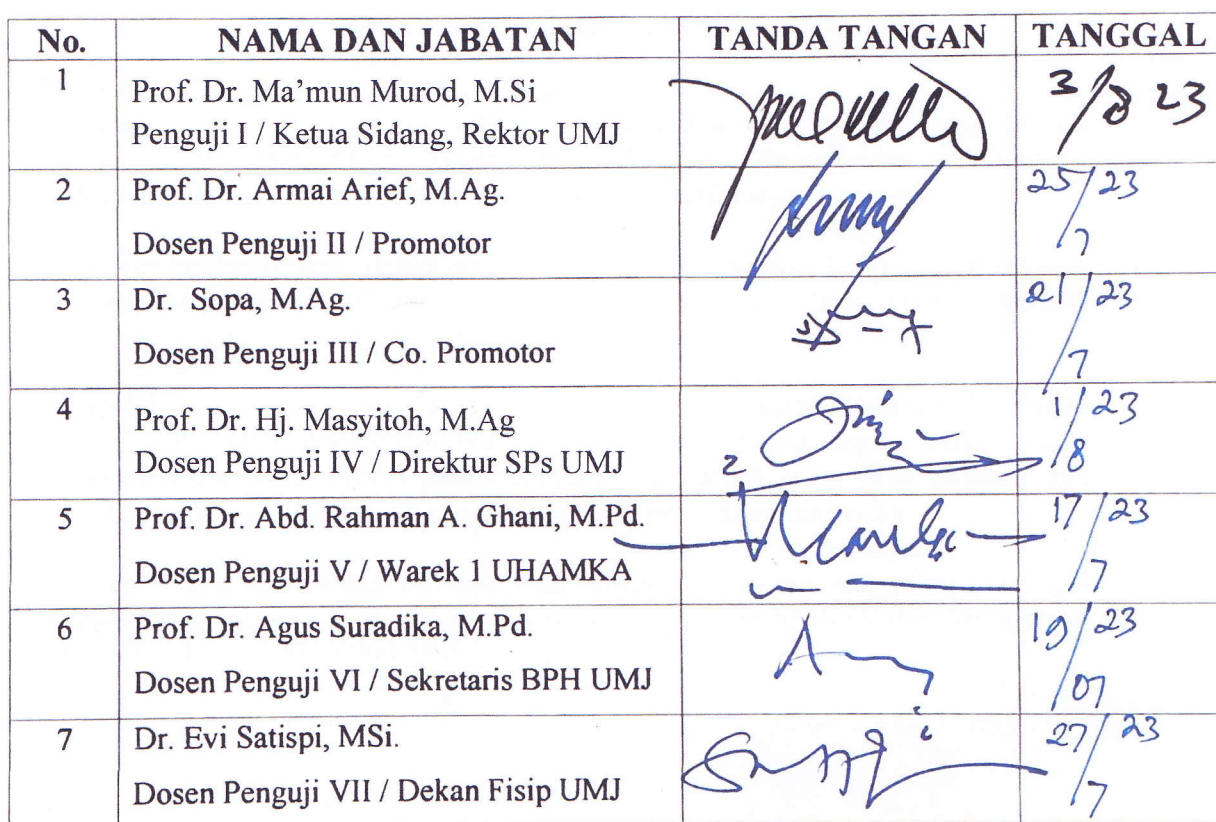 No. NAMA DAN JABATAN TANDA TANGAN TANGGAL
1 Prof. Dr. Ma'mun Murod, M.Si 3/8 23
Penguji I / Ketua Sidang, Rektor UMJ
2 Prof. Dr. Armai Arief, M.Ag. 25/23
Dosen Penguji II / Promotor 7
3 Dr. Sopa, M.Ag. 21/23
Dosen Penguji III / Co. Promotor 7
4 Prof. Dr. Hj. Masyitoh, M.Ag 1/23
Dosen Penguji IV / Direktur SPs UMJ 8
5 Prof. Dr. Abd. Rahman A. Ghani, M.Pd. 17/23
Dosen Penguji V / Warek 1 UHAMKA 7
6 Prof. Dr. Agus Suradika, M.Pd. 19/23
Dosen Penguji VI / Sekretaris BPH UMJ 07
7 Dr. Evi Satispi, MSi. 27/23
Dosen Penguji VII / Dekan Fisip UMJ 7